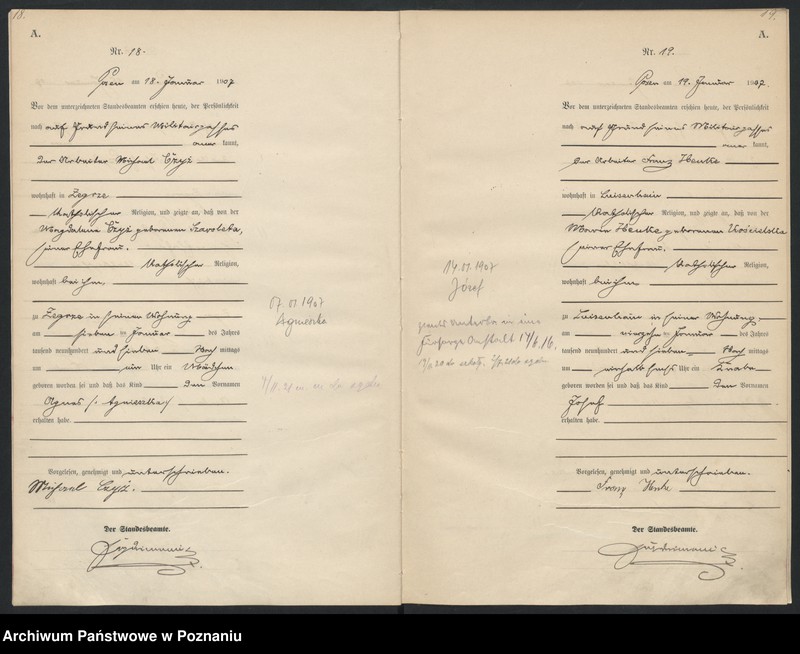 18.
A.
Nr. 18.
am 18. Januar 1907
Vor dem unterzeichneten Standesbeamten erschien heute, der Persönlichkeit
nach auf Grund seines Militärpasses
kannt,
der Arbeiter Michael Czyż
wohnhaft in Zegrze
katholischer Religion, und zeigte an, daß von der
Magdalena Czyż geborenen
seiner Ehefrau,
katholischer Religion,
wohnhaft bei ihm,
zu Zegrze in seiner Wohnung
am sieben ten Januar des Jahres
tausend neunhundert und sieben Nach mittags
um ein Uhr ein Mädchen
geboren worden sei und daß das Kind den Vornamen
Agnes (: Agnieszka)
erhalten habe.
Vorgelesen, genehmigt und unterschrieben.
Michael Czyż.
Der Standesbeamte.
07.01.1907
Agnieszka
19.
A.
Nr. 19.
am 19. Januar 1907.
Vor dem unterzeichneten Standesbeamten erschien heute, der Persönlichkeit
nach auf Grund seines Militärpasses
kannt,
der Arbeiter Franz Henke
wohnhaft in Luisenhain
katholischer Religion, und zeigte an, daß von der
Maria Henke geborenen
seiner Ehefrau,
katholischer Religion,
wohnhaft bei ihm
zu Luisenhain in seiner Wohnung,
am vierzehn ten Januar des Jahres
tausend neunhundert und sieben Nach mittags
um Uhr ein Knabe
geboren worden sei und daß das Kind den Vornamen
Josef
erhalten habe.
Vorgelesen, genehmigt und unterschrieben.
Franz Henke
Der Standesbeamte.
14.01.1907
Józef
Archiwum Państwowe w Poznaniu